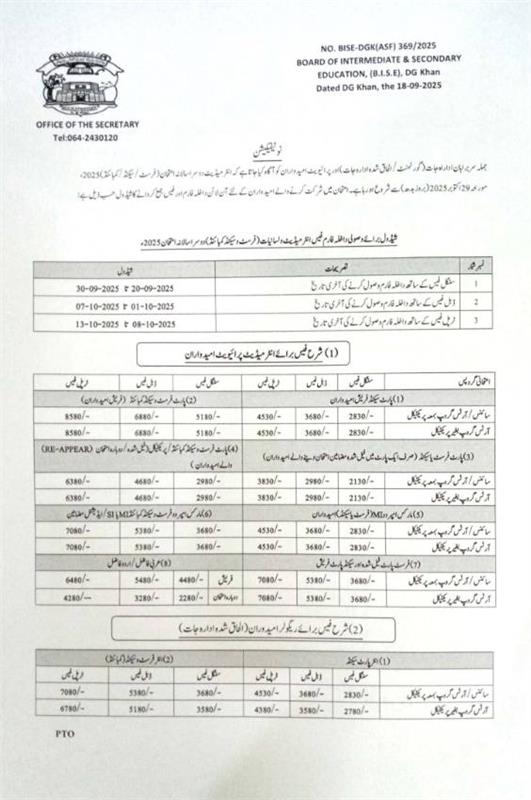 NO. BISE-DGK(ASF) 369/2025
BOARD OF INTERMEDIATE & SECONDARY
EDUCATION, (B.I.S.E), DG Khan
Dated DG Khan, the 18-09-2025
OFFICE OF THE SECRETARY
Tel:064-2430120
نوٹیفکیشن
جملہ سربراہان ادارہ جات (گورنمنٹ / الحاق شدہ ادارہ جات) اور پرائیویٹ امیدواران کو آگاہ کیا جاتا ہے کہ انٹرمیڈیٹ دوسرا سالانہ امتحان (فرسٹ / سیکنڈ / کمبائنڈ) 2025ء
مورخہ 29 اکتوبر 2025 (بروز بدھ) سے شروع ہو رہا ہے۔ امتحان میں شرکت کرنے والے امیدواران کے لئے آن لائن داخلہ فارم اور فیس جمع کروانے کا شیڈول حسب ذیل ہے:
شیڈول برائے وصولی داخلہ فارم فیس انٹرمیڈیٹ و لسانیات (فرسٹ و سیکنڈ کمبائنڈ) دوسرا سالانہ امتحان 2025ء
نمبر شمار تصریحات شیڈول
1 سنگل فیس کے ساتھ داخلہ فارم وصول کرنے کی آخری تاریخ 20-09-2025 تا 30-09-2025
2 ڈبل فیس کے ساتھ داخلہ فارم وصول کرنے کی آخری تاریخ 01-10-2025 تا 07-10-2025
3 ٹرپل فیس کے ساتھ داخلہ فارم وصول کرنے کی آخری تاریخ 08-10-2025 تا 13-10-2025
(1) شرح فیس برائے انٹرمیڈیٹ پرائیویٹ امیدواران
امتحانی گروپس سنگل فیس ڈبل فیس ٹرپل فیس سنگل فیس ڈبل فیس ٹرپل فیس
(1) پارٹ سیکنڈ فریش امیدواران (2) پارٹ فرسٹ و سیکنڈ کمبائنڈ (فریش امیدواران)
سائنس / آرٹس گروپ بمعہ پریکٹیکل 2830/- 3680/- 4530/- 5180/- 6880/- 8580/-
آرٹس گروپ بغیر پریکٹیکل 2830/- 3680/- 4530/- 5180/- 6880/- 8580/-
(3) پارٹ فرسٹ یا سیکنڈ (صرف ایک پارٹ میں فیل شدہ مضامین امتحان دینے والے امیدواران) (4) پارٹ فرسٹ و سیکنڈ کمبائنڈ / پریکٹیکل (فیل شدہ / دوبارہ امتحان (RE-APPEAR) والے امیدواران)
سائنس / آرٹس گروپ بمعہ پریکٹیکل 2130/- 2980/- 3830/- 2980/- 4680/- 6380/-
آرٹس گروپ بغیر پریکٹیکل 2130/- 2980/- 3830/- 2980/- 4680/- 6380/-
(5) مارکس امپروو MI (فرسٹ یا سیکنڈ) امیدواران (6) مارکس امپروو فرسٹ و سیکنڈ کمبائنڈ MI یا SI / ایڈیشنل مضامین
سائنس / آرٹس گروپ بمعہ پریکٹیکل 2830/- 3680/- 4530/- 3680/- 5380/- 7080/-
آرٹس گروپ بغیر پریکٹیکل 2830/- 3680/- 4530/- 3680/- 5380/- 7080/-
(7) فرسٹ پارٹ فیل شدہ اور سیکنڈ پارٹ فریش (8) عربی فاضل / اردو فاضل
سائنس / آرٹس گروپ بمعہ پریکٹیکل 3680/- 5380/- 7080/- فریش 4480/- 5480/- 6480/-
آرٹس گروپ بغیر پریکٹیکل 3680/- 5380/- 7080/- دوبارہ امتحان 2280/- 3280/- 4280/-
(2) شرح فیس برائے ریگولر امیدوران (الحاق شدہ ادارہ جات)
(1) انٹر پارٹ سیکنڈ (2) انٹر فرسٹ و سیکنڈ (کمبائنڈ)
سنگل فیس ڈبل فیس ٹرپل فیس سنگل فیس ڈبل فیس ٹرپل فیس
سائنس / آرٹس گروپ بمعہ پریکٹیکل 2830/- 3680/- 4530/- 3680/- 5380/- 7080/-
آرٹس گروپ بغیر پریکٹیکل 2780/- 3580/- 4380/- 3580/- 5180/- 6780/-
PTO